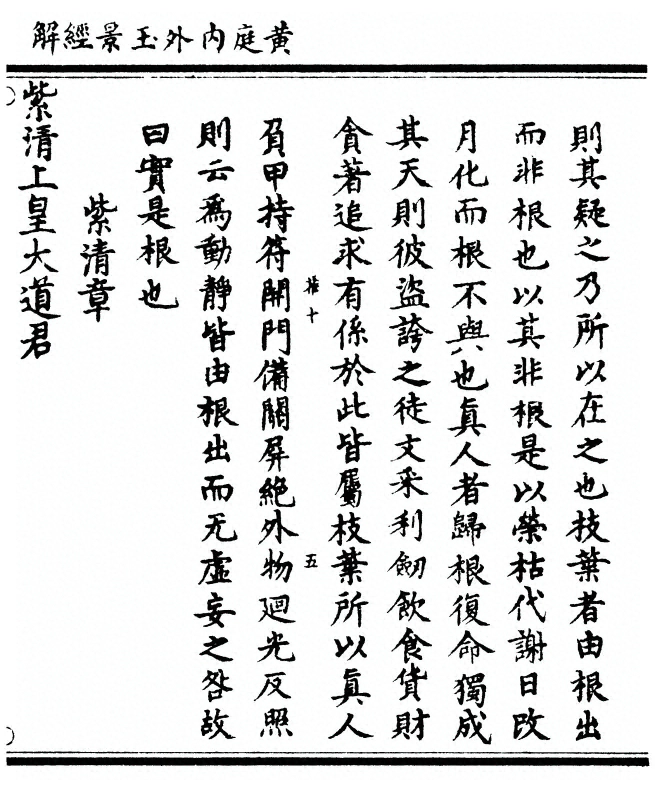 黄庭内外玉景經解
則其疑之乃所以在之也枝葉者由根出
而非根也以其非根是以榮枯代謝日改
月化而根不與也真人者歸根復命獨成
其天則彼盜誇之徒文采利劒飲食貨財
貪著追求有係於此皆屬枝葉所以真人
負甲持符開門備關屏絶外物廻光反照
則云為動靜皆由根出而无虚妄之咎故
曰實是根也
紫清章
紫清上皇大道君
五